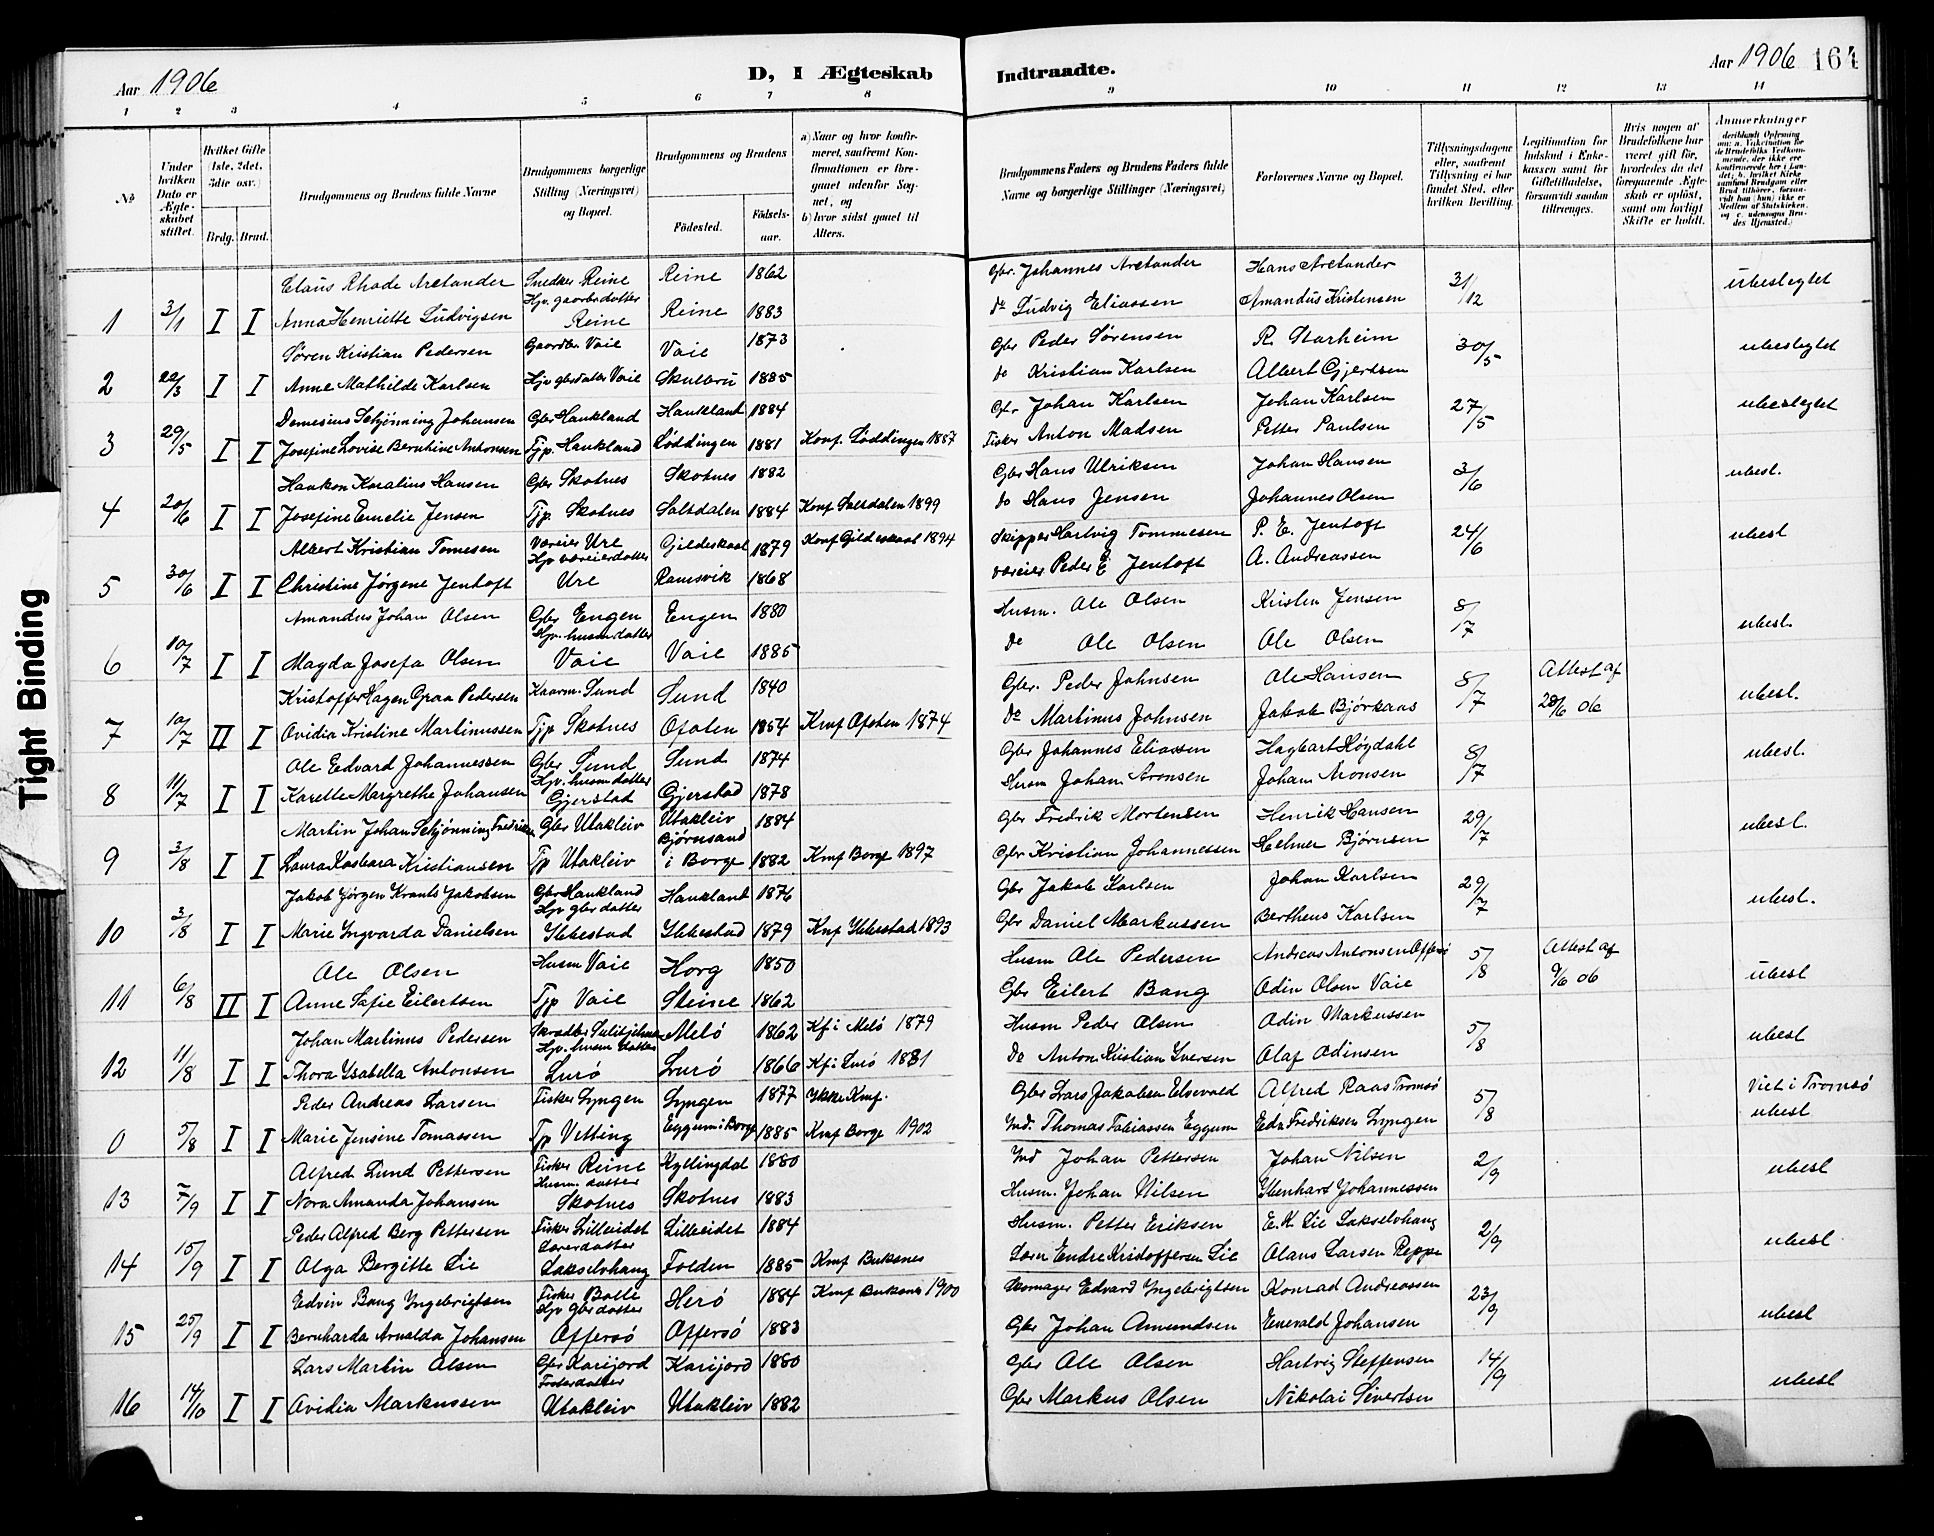 Aar 1906
D, I Ægteskab
Indtraadte.
Aar 1906 164
1 2 3 4 5 6 7 8 9 10 11 12 13 14
No
Under hvilken Dato er Ægteskabet stiftet.
Hvilket Gifte (1ste, 2det, 3die osv.)
Brdg. Brud.
Brudgommens og Brudens fulde Navne
Brudgommens borgerlige Stilling (Næringsvei) og Bopæl.
Brudgommens og Brudens
Fødested.
Fødselsaar.
a) Naar og hvor konfirmeret, saafremt Konfirmationen er foregaaet udenfor Sognet, og
b) hvor sidst gaaet til Alters.
Brudgommens Faders og Brudens Faders fulde Navne og borgerlige Stillinger (Næringsvei)
Forlovernes Navne og Bopæl.
Tillysningsdagene eller, saafremt Tillysning ei har fundet Sted, efter hvilken Bevilling.
Legitimation for Indskud i Enkekassen samt for Giftetilladelse, forsaavidt saadan tiltrænges.
Hvis nogen af Brudefolkene har været gift før, hvorledes da det foregaaende Ægteskab er opløst, samt om lovligt Skifte er holdt.
Anmerkninger
Claus Rhode Arctander Snedker Reine Reine 1862 Gbr. Johannes Arctander Hans Arctander 31/12 ubeslegtet
1 3/1 I I Anna Henriette Ludvigsen Hjv. gaarbr.datter Reine Reine 1883 Do Ludvig Eliassen Amandus Kristensen
Søren Kristian Pedersen Gaardbr. Vaie Vaie 1873 Gbr Peder Sørensen R. Storheim 30/5 ubeslegtet
2 22/3 I I Anne Mathilde Karlsen Hjv gbrdatter Vaie Skulbru 1885 do Kristian Karlsen Albert Gjertsen
Demesius Schjønning Johansen Gbr Haukland Haukland 1884 Gbr Johan Karlsen Johan Karlsen 27/5 ubeslegtet
3 29/5 I I Josefine Lovise Bernhine Antonsen Tjp. Haukland Løddingen 1881 Konf. Løddingen 1887 Fisker Anton Madsen Petter Paulsen
Haakon Koralius Hansen Gbr Skotnes Skotnes 1882 Gbr Hans Ulriksen Johan Hansen 3/6 ubesl.
4 20/6 I I Josefine Emelie Jensen Tjp. Skotnes Saltdalen 1884 Konf Saltdalen 1899 do Hans Jensen Johannes Olsen
Albert Kristian Tomesen Væreier Ure Gildeskaal 1879 Konf Gildeskaal 1894 Skipper Hartvig Tommesen P. E. Jentoft 24/6 ubesl
5 30/6 I I Christine Jørgene Jentoft Hjv væreierdatter Ure Ramsvik 1868 væreier Peder E Jentoft A. Andreassen
Amandus Johan Olsen Gbr Engen Engen 1880 Husm. Ole Olsen Kristen Jensen 8/7 ubesl.
6 10/7 I I Magda Josefa Olsen Hjv. husm datter Vaie Vaie 1885 Do Ole Olsen Ole Olsen
Kristoffer Hagen Graa Pedersen Kaarm. Sund Sund 1840 Gbr. Peder Johnsen Ole Hansen 8/7 Attest af 28/6 06 ubesl.
7 10/7 II I Ovidia Kristine Martinussen Tjp Skotnes Ofoten 1854 Knf Ofoten 1874 Do Martinus Johnsen Jakob Bjørkaas
Ole Edvard Johannessen Gbr Sund Sund 1874 Gbr Johannes Eliassen Hagbart Høgdahl 8/7 ubesl.
8 11/7 I I Karelle Margrethe Johansen Hjv. husm datter Gjerstad Gjerstad 1878 Husm Johan Aronsen Johan Aronsen
Martin Johan Schjønning Fredriksen Gbr Utakleiv Utakleiv 1884 Gbr Fredrik Mortensen Henrik Hansen 29/7 ubesl.
9 3/8 I I Laura Kasbara Kristiansen Tp Utakleiv Bjørnsand i Borge 1882 Knf Borge 1897 Gbr Kristian Johannessen Helmer Bjørnsen
Jakob Jørgen Krants Jakobsen Gbr Haukland Haukland 1876 Gbr Jakob Karlsen Johan Karlsen 29/7 ubesl.
10 3/8 I I Marie Ingvarda Danielsen Hjv gbr datter Ibbestad Ibbestad 1879 Knf Ibbestad 1893 Gbr Daniel Markussen Bertheus Karlsen
Ole Olsen Husm Vaie Horg 1850 Husm Ole Pedersen Andreas Antonsen Offersø 5/8 Attest af 9/6 06 ubesl
11 6/8 II I Anne Sofie Eilertsen Tjp Vaie Steine 1862 Gbr Eilert Bang Odin Olsen Vaie
Johan Martinus Pedersen Skrædder Sulitjelma Melø 1862 Kf i Melø 1879 Husm Peder Olsen Odin Markussen 5/8 ubesl
12 11/8 I I Thora Ysabella Antonsen Hjv. husm datter Lurø Lurø 1866 Kf i Lurø 1881 Do Anton Kristian Iversen Olaf Odinsen
Peder Andreas Larsen Fisker Lyngen Lyngen 1877 Ikke Knf. Gbr Lars Jakobsen Elsevold Alfred Raas Tromsø 5/8 Viet i Tromsø ubesl
0 5/8 I I Marie Jensine Tomassen Tp Vetting Eggum i Borge 1885 Knf Borge 1902 Ind. Thomas Tobiassen Eggum Edv Fredriksen Lyngen
Alfred Lund Pettersen Fisker Reine Kyllingdal 1880 Ind Johan Pettersen Johan Nilsen 2/9 ubesl
13 7/9 I I Nora Amanda Johansen Husm. datter Skotnes Skotnes 1883 Husm. Johan Nilsen Ebenhard Johannessen
Peder Alfred Berg Pettersen Fisker Lilleeidet Lilleeidet 1884 Husm. Petter Eriksen E. K. Lie Lakselvhang 2/9 ubesl
14 15/9 I I Olga Bergitte Lie Lærerdatter Lakselvhang Folden 1885 Knf Buksnes Lærer Endre Kristoffersen Lie Olaus Larsen Reppe
Edvin Bang Yngebrigtsen Fisker Balle Herø 1884 Knf Buksnes 1900 Skomager Edvard Yngebrigtsen Konrad Andreassen 23/9 ubesl
15 25/9 I I Bernharda Arnolda Johansen Hjv gbr datter Offersø Offersø 1883 Gbr Johan Amundsen Enevald Johansen
Lars Martin Olsen Gbr Karijord Karijord 1880 Gbr Ole Olsen Hartvig Steffensen 14/9 ubesl
16 14/10 I I Ovidia Markussen Fosterdatter Utakleiv Utakleiv 1882 Gbr Markus Olsen Nikolai Sivertsen
Tight Binding